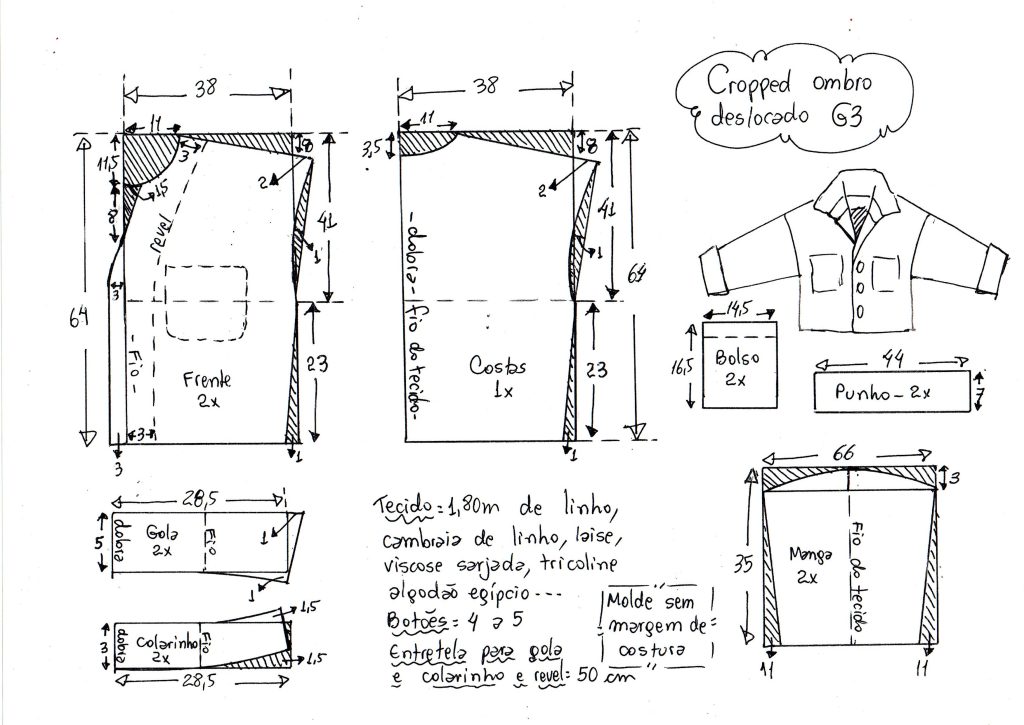 Cropped ombro
deslocado G3
38
11
11,5
3
1,5
8
8
2
revel
1
41
64
3
Fio
Frente
2x
23
3
3
1
38
11
3,5
8
2
41
1
64
-dobra- fio do tecido-
Costas
1x
23
1
14,5
16,5
Bolso
2x
44
Punho - 2x
7
66
3
35
Manga
2x
Fio do tecido
11
11
28,5
5
dobra
Gola
2x
Fio
1
1
1,5
3
dobra
Colarinho
2x
Fio
1,5
28,5
Tecido = 1,80m de linho,
cambraia de linho, laise,
viscose sarjada, tricoline
algodão egípcio ---
Botões = 4 a 5
Entretela para gola
e colarinho e revel = 50 cm
Molde sem
margem de
costura